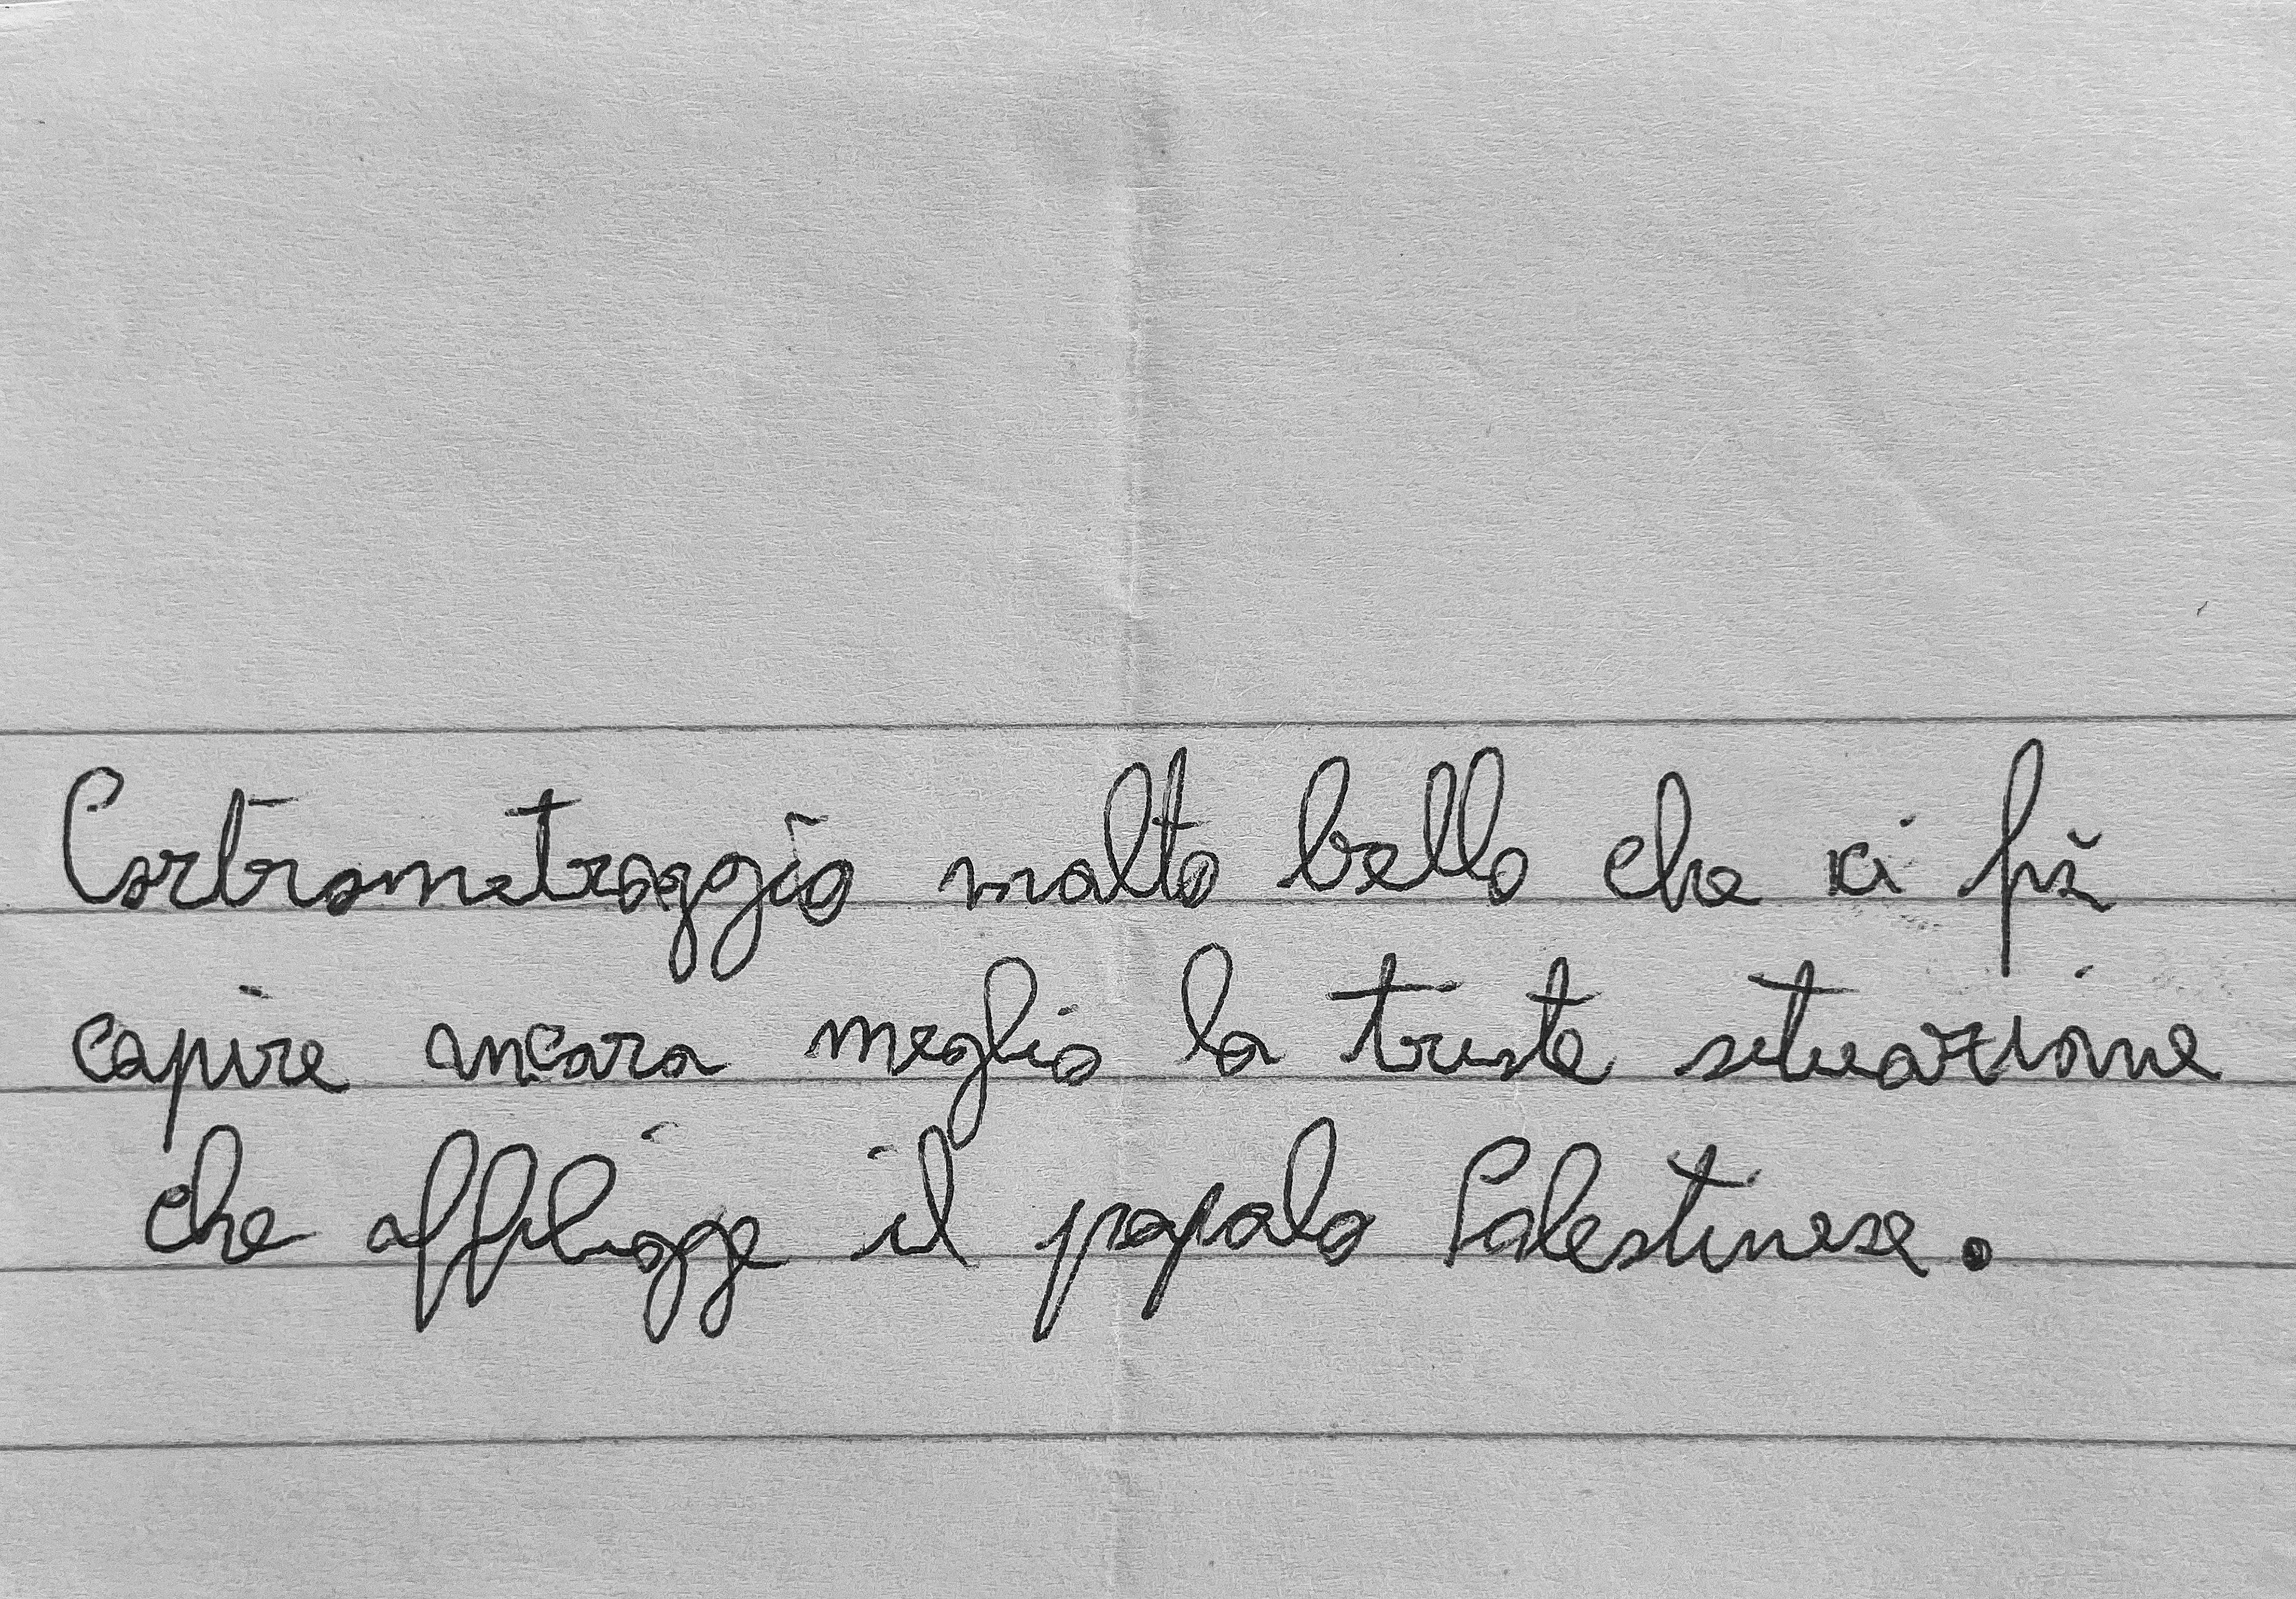 Cortometraggio molto bello che ci fà
capire ancora meglio la triste situazione
che affligge il popolo Palestinese.